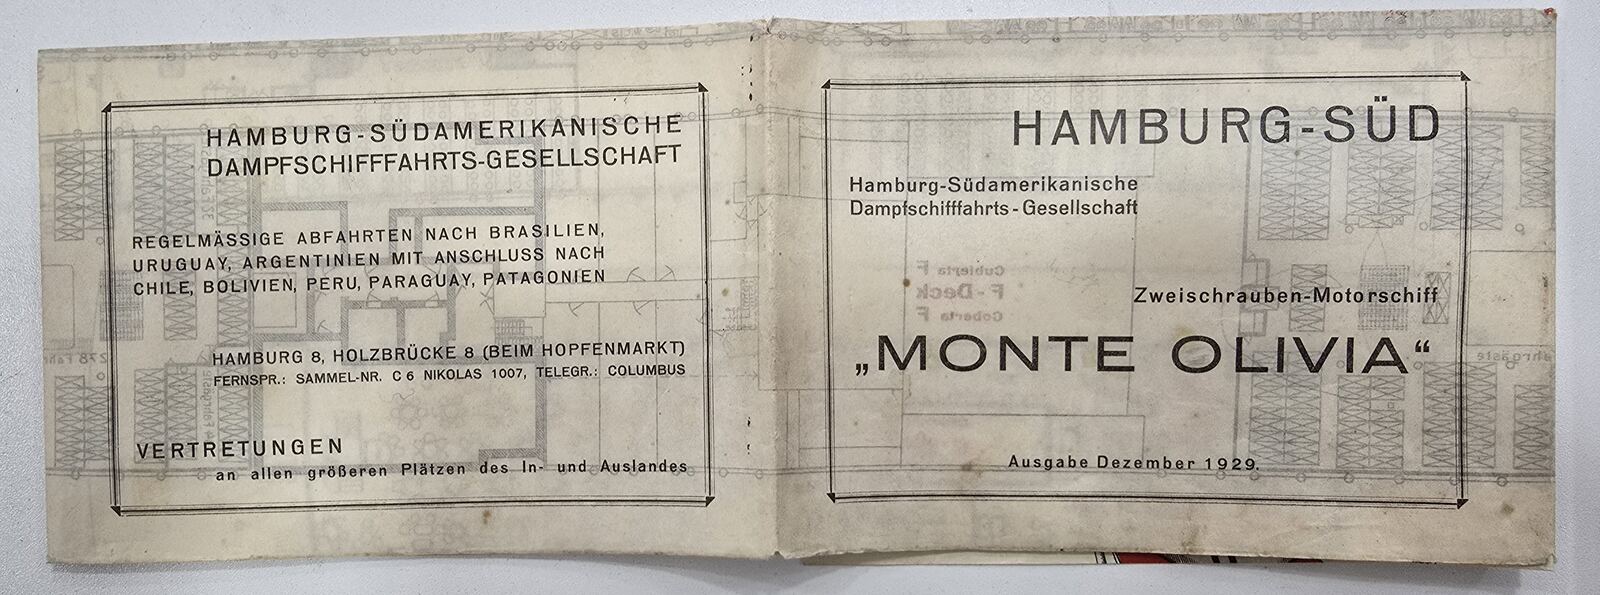 HAMBURG-SÜDAMERIKANISCHE
DAMPFSCHIFFFAHRTS-GESELLSCHAFT
REGELMÄSSIGE ABFAHRTEN NACH BRASILIEN,
URUGUAY, ARGENTINIEN MIT ANSCHLUSS NACH
CHILE, BOLIVIEN, PERU, PARAGUAY, PATAGONIEN
HAMBURG 8, HOLZBRÜCKE 8 (BEIM HOPFENMARKT)
FERNSPR.: SAMMEL-NR. C 6 NIKOLAS 1007, TELEGR.: COLUMBUS
VERTRETUNGEN
an allen größeren Plätzen des In- und Auslandes
HAMBURG-SÜD
Hamburg-Südamerikanische
Dampfschifffahrts-Gesellschaft
Cubierta F
F-Deck
Coberta F
Zweischrauben-Motorschiff
„MONTE OLIVIA“
Ausgabe Dezember 1929.